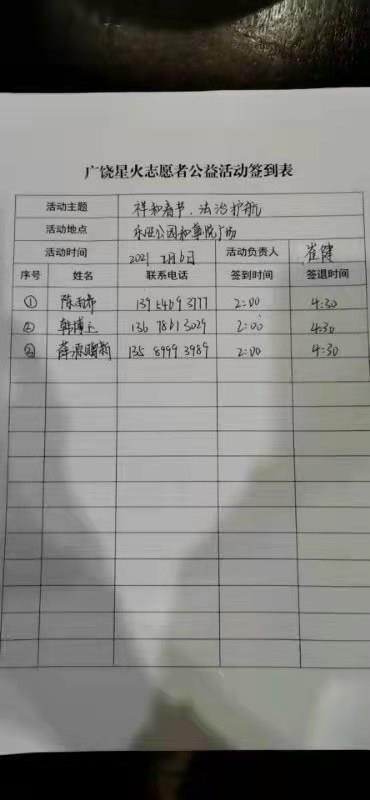 广饶星火志愿者公益活动签到表
活动主题 祥和春节、法治护航
活动地点 乐世公园和华院广场
活动时间 2021 2月6日 活动负责人 崔健
序号 姓名 联系电话 签到时间 签退时间
① 陈 139 5469 3777 2:00 4:30
② 韩博玉 136 7861 3029 2:00 4:30
③ 薛源鹏新 135 8999 3989 2:00 4:30